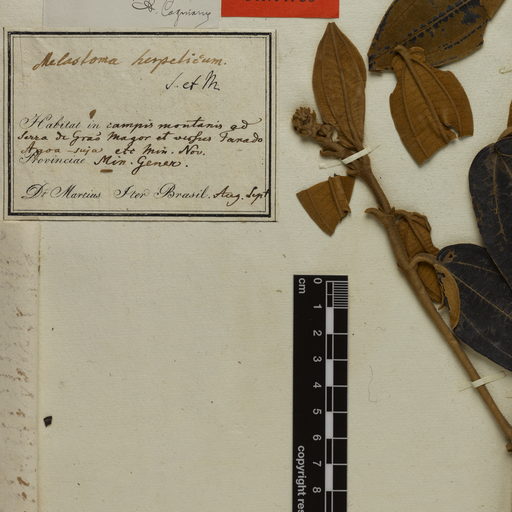 A. Cogniaux
Melastoma herpeticum.
S. et M
Habitat in campis montanis ad
Serra de Grão Mogor et versus Tanado
Agoa suja etc Min. Nov.
Provinciae Min. Gener.
Dr Martius Iter Brasil. Aug. Sept
cm
0
1
2
3
4
5
6
7
8
copyright res